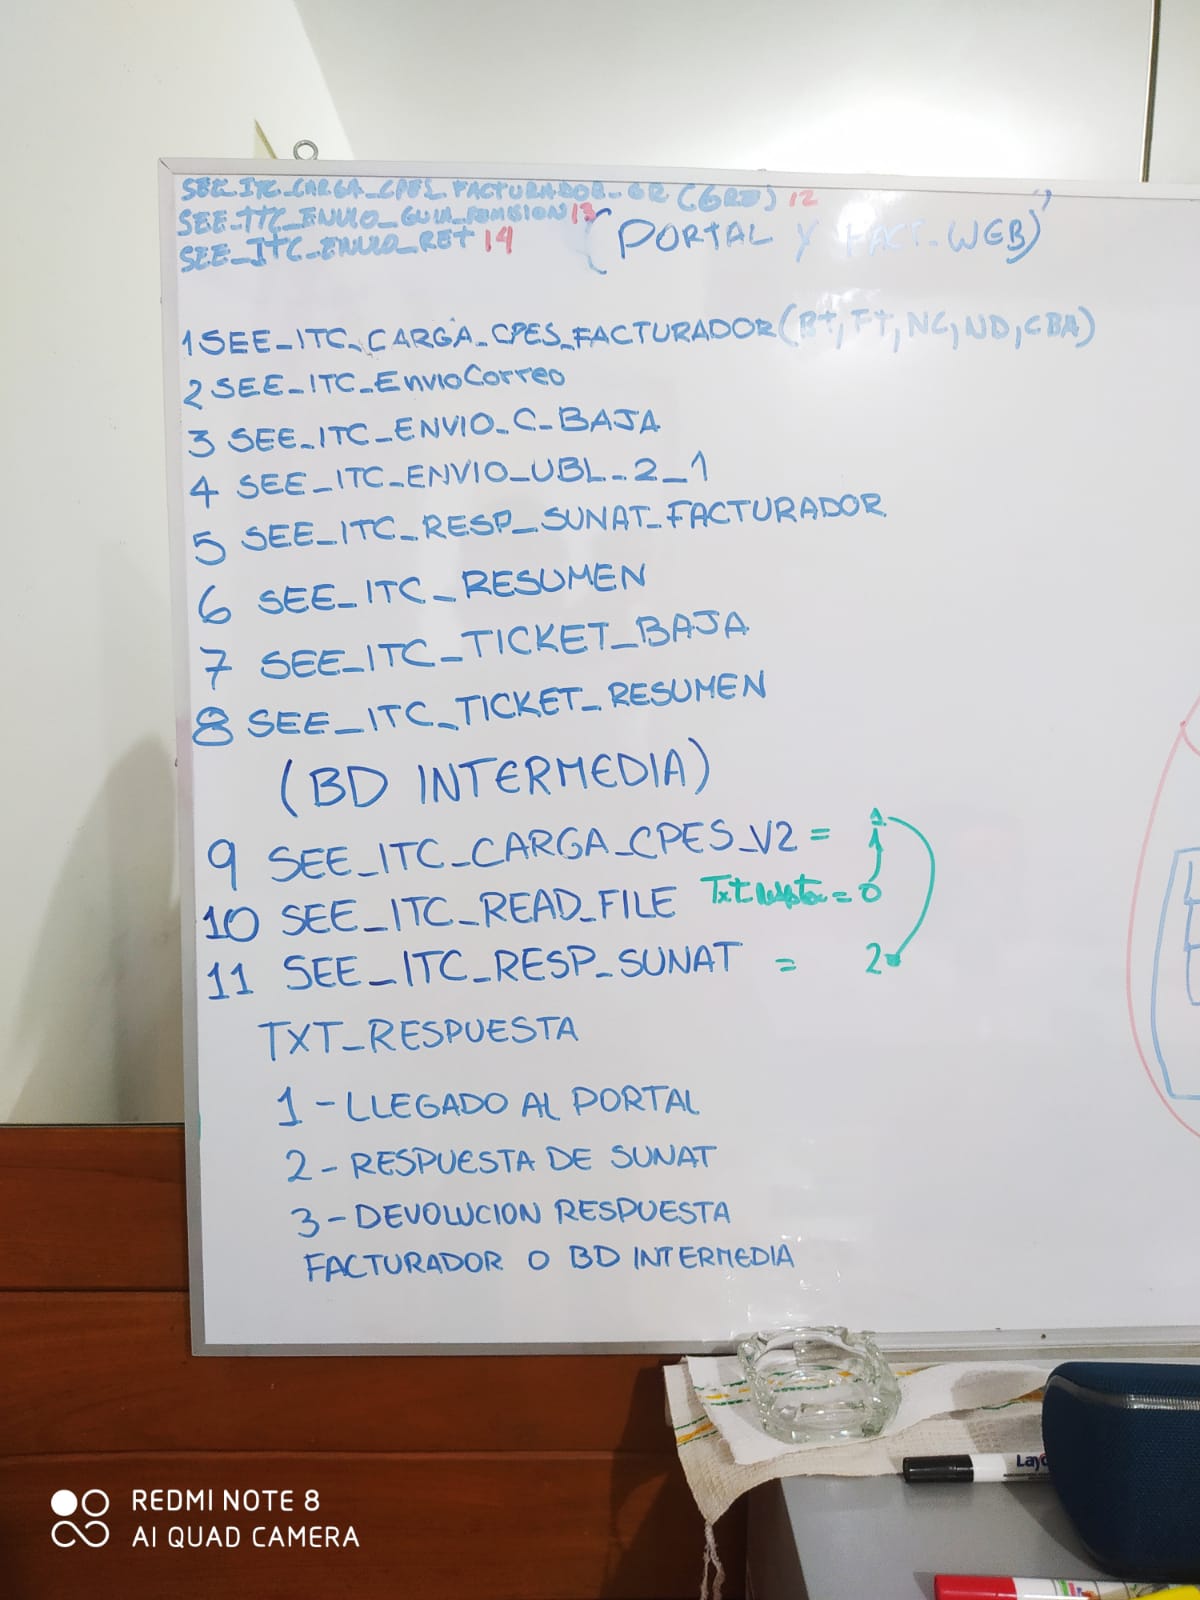 SEE_ITC_CARGA_CPES_FACTURADOR_GR (GRE) 12
SEE_ITC_ENVIO_GUIA_REMISION 13
SEE_ITC_ENVIO_RET 14
(PORTAL Y FACT. WEB)
1 SEE_ITC_CARGA_CPES_FACTURADOR (BT, FT, NC, ND, CBA)
2 SEE_ITC_EnvioCorreo
3 SEE_ITC_ENVIO_C_BAJA
4 SEE_ITC_ENVIO_UBL_2_1
5 SEE_ITC_RESP_SUNAT_FACTURADOR
6 SEE_ITC_RESUMEN
7 SEE_ITC_TICKET_BAJA
8 SEE_ITC_TICKET_RESUMEN
(BD INTERMEDIA)
9 SEE_ITC_CARGA_CPES_V2 = 1
10 SEE_ITC_READ_FILE Txt = 0
11 SEE_ITC_RESP_SUNAT = 2
TXT_RESPUESTA
1 - LLEGADO AL PORTAL
2 - RESPUESTA DE SUNAT
3 - DEVOLUCION RESPUESTA
FACTURADOR O BD INTERMEDIA
REDMI NOTE 8
AI QUAD CAMERA